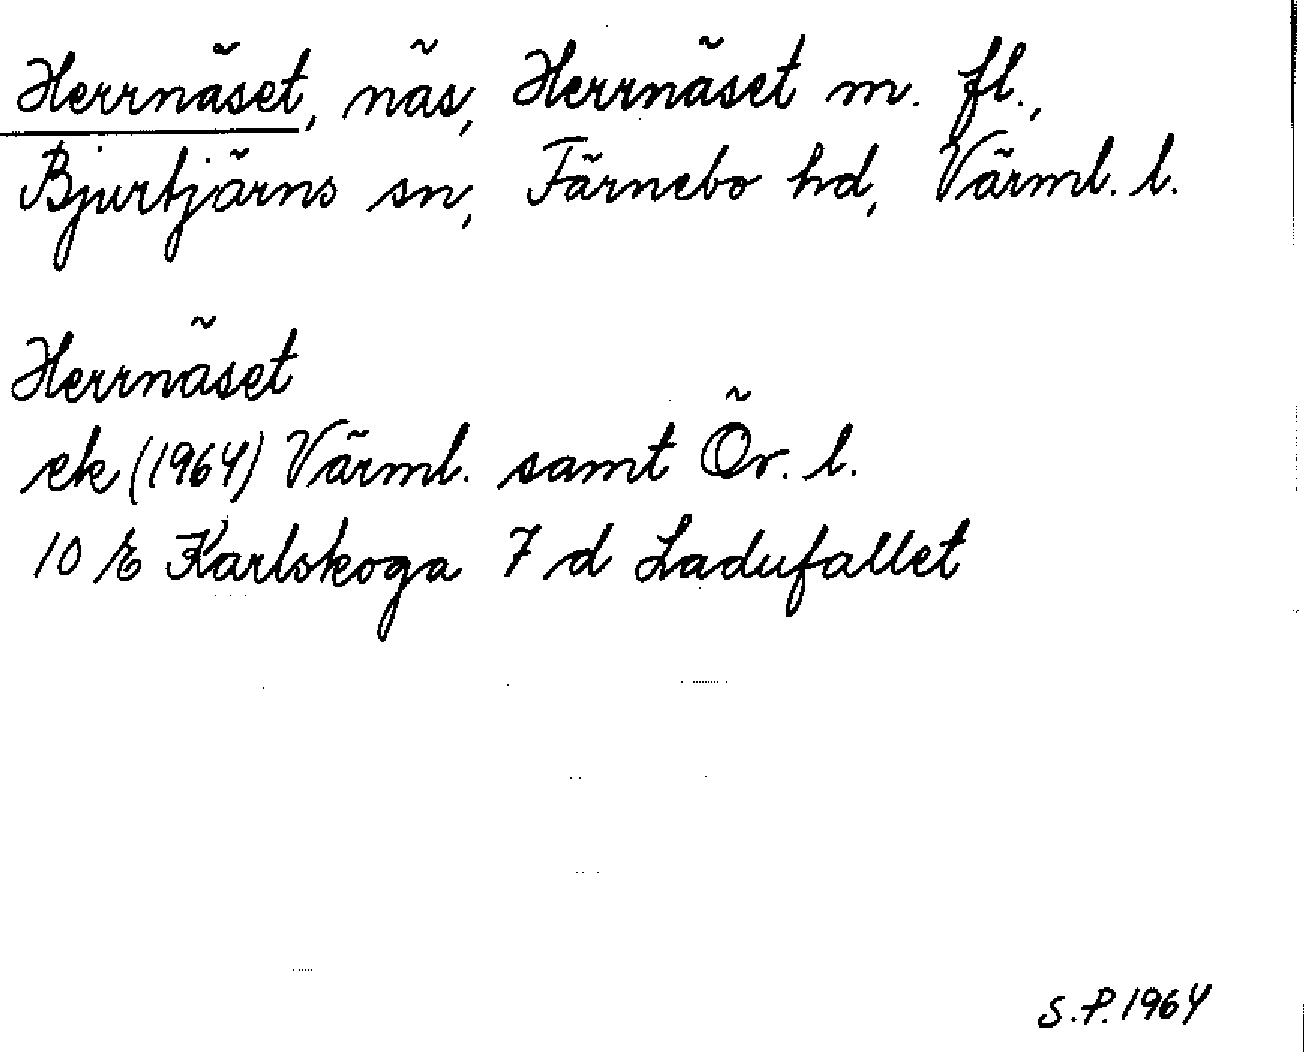 Herrnäset, näs, Herrnäset m. fl.,
Bjurtjärns sn, Färnebo hd, Värml. l.
Herrnäset
ek (1964) Värml. samt Ör. l.
10 E Karlskoga 7 d Ladufallet
S.P. 1964